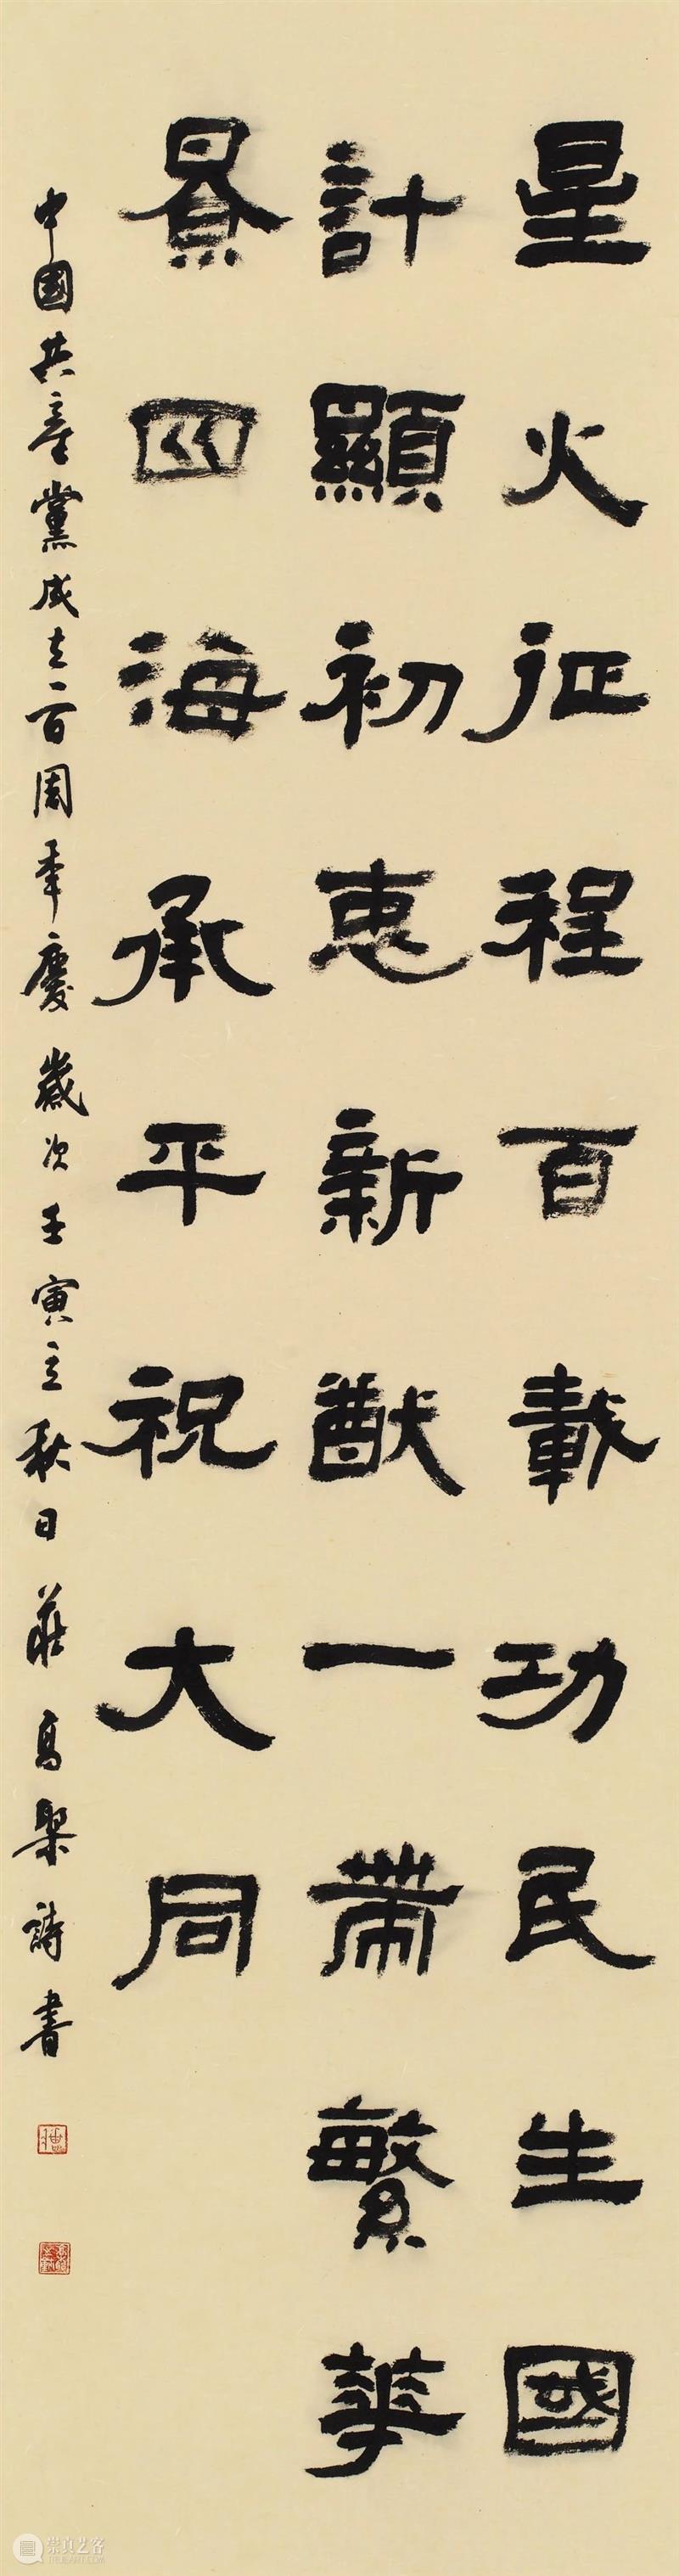 星火征程百載功民生國
計顯初衷新猷一帶繁華
景四海承平祝大同
中國共產黨成立一百周年慶歲次壬寅立秋日詩書
崇真艺客